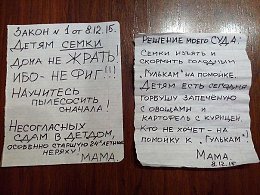 ЗАКОН N 1 от 8.12.15.
ДЕТЯМ СЕМКИ
ДОМА НЕ ЖРАТЬ,
ИБО - НЕ ФИГ!!!
НАУЧИТЕСЬ
ПЫЛЕСОСИТЬ
СНАЧАЛА!
НЕСОГЛАСНЫХ
СДАМ В ДЕТДОМ,
ОСОБЕННО СТАРШУЮ 24ᵡ ЛЕТНЮЮ
НЕРЯХУ!
МАМА.
РЕШЕНИЕ МОЕГО СУДА:
СЕМКИ ИЗЪЯТЬ И
СКОРМИТЬ ГОЛОДНЫМ
"ГУЛЬКАМ" НА ПОМОЙКЕ.
ДЕТЯМ ЕСТЬ СЕГОДНЯ
ГОРБУШУ ЗАПЕЧЁНУЮ
С ОВОЩАМИ И
КАРТОФЕЛЬ С КУРИЦЕЙ.
КТО НЕ ХОЧЕТ - НА
ПОМОЙКУ К "ГУЛЬКАМ"!
МАМА.
8.12.15.